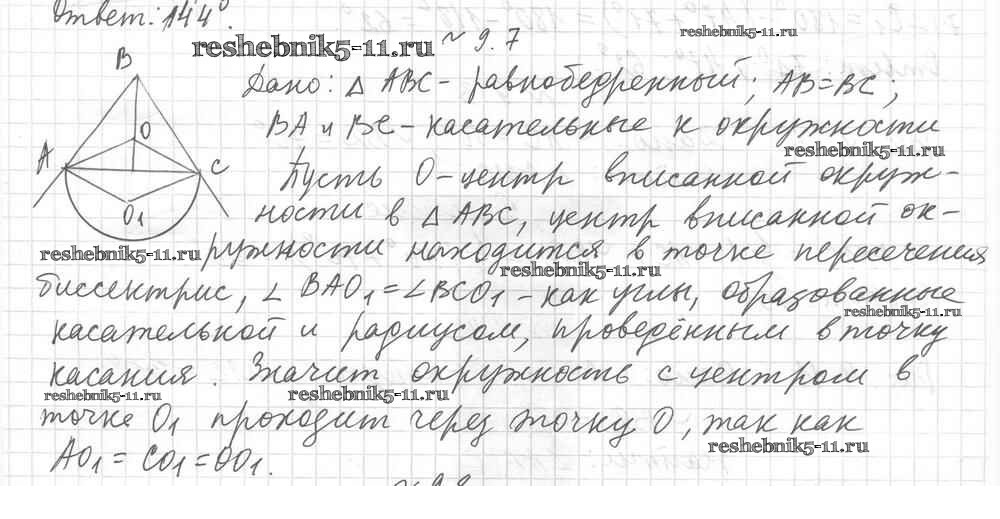 Ответ: 144°.
reshebnik5-11.ru
№ 9.7
reshebnik5-11.ru
Дано: △ ABC - равнобедренный; AB=BC;
BA и BC - касательные к окружности
reshebnik5-11.ru
Пусть O - центр вписанной окруж-
ности в △ ABC, центр вписанной ок-
reshebnik5-11.ru
ружности находится в точке пересечения
reshebnik5-11.ru
биссектрис, ∠ BAO₁ = ∠BCO₁ - как углы, образованные
reshebnik5-11.ru
касательной и радиусом, проведённым в точку
касания. Значит окружность с центром в
reshebnik5-11.ru
reshebnik5-11.ru
точке O₁ проходит через точку O, так как
reshebnik5-11.ru
AO₁ = CO₁ = OO₁.
B
O
A
C
O₁